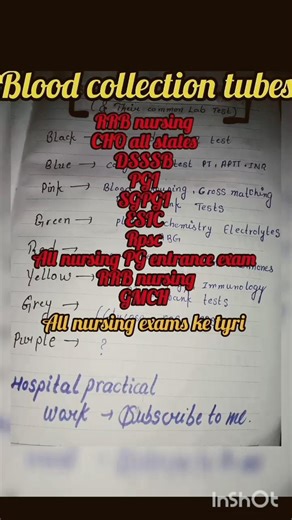 Blood collection tubes
(& Their common Lab Test)
RRB nursing
Black → test
CHO all states
DSSSB
Blue → test PT, APTT, INR
PGI
Pink → Blood Gross matching
SGPGI
Tests
Green → chemistry Electrolytes
ESIC
Rpsc
BG
Red
All nursing PG entrance exam
Yellow → Immunology
RRB nursing
Grey → bank tests
GMCH
All nursing exams ke tyri
Purple → ?
Hospital practical
work → Subscribe to me.
InShOt